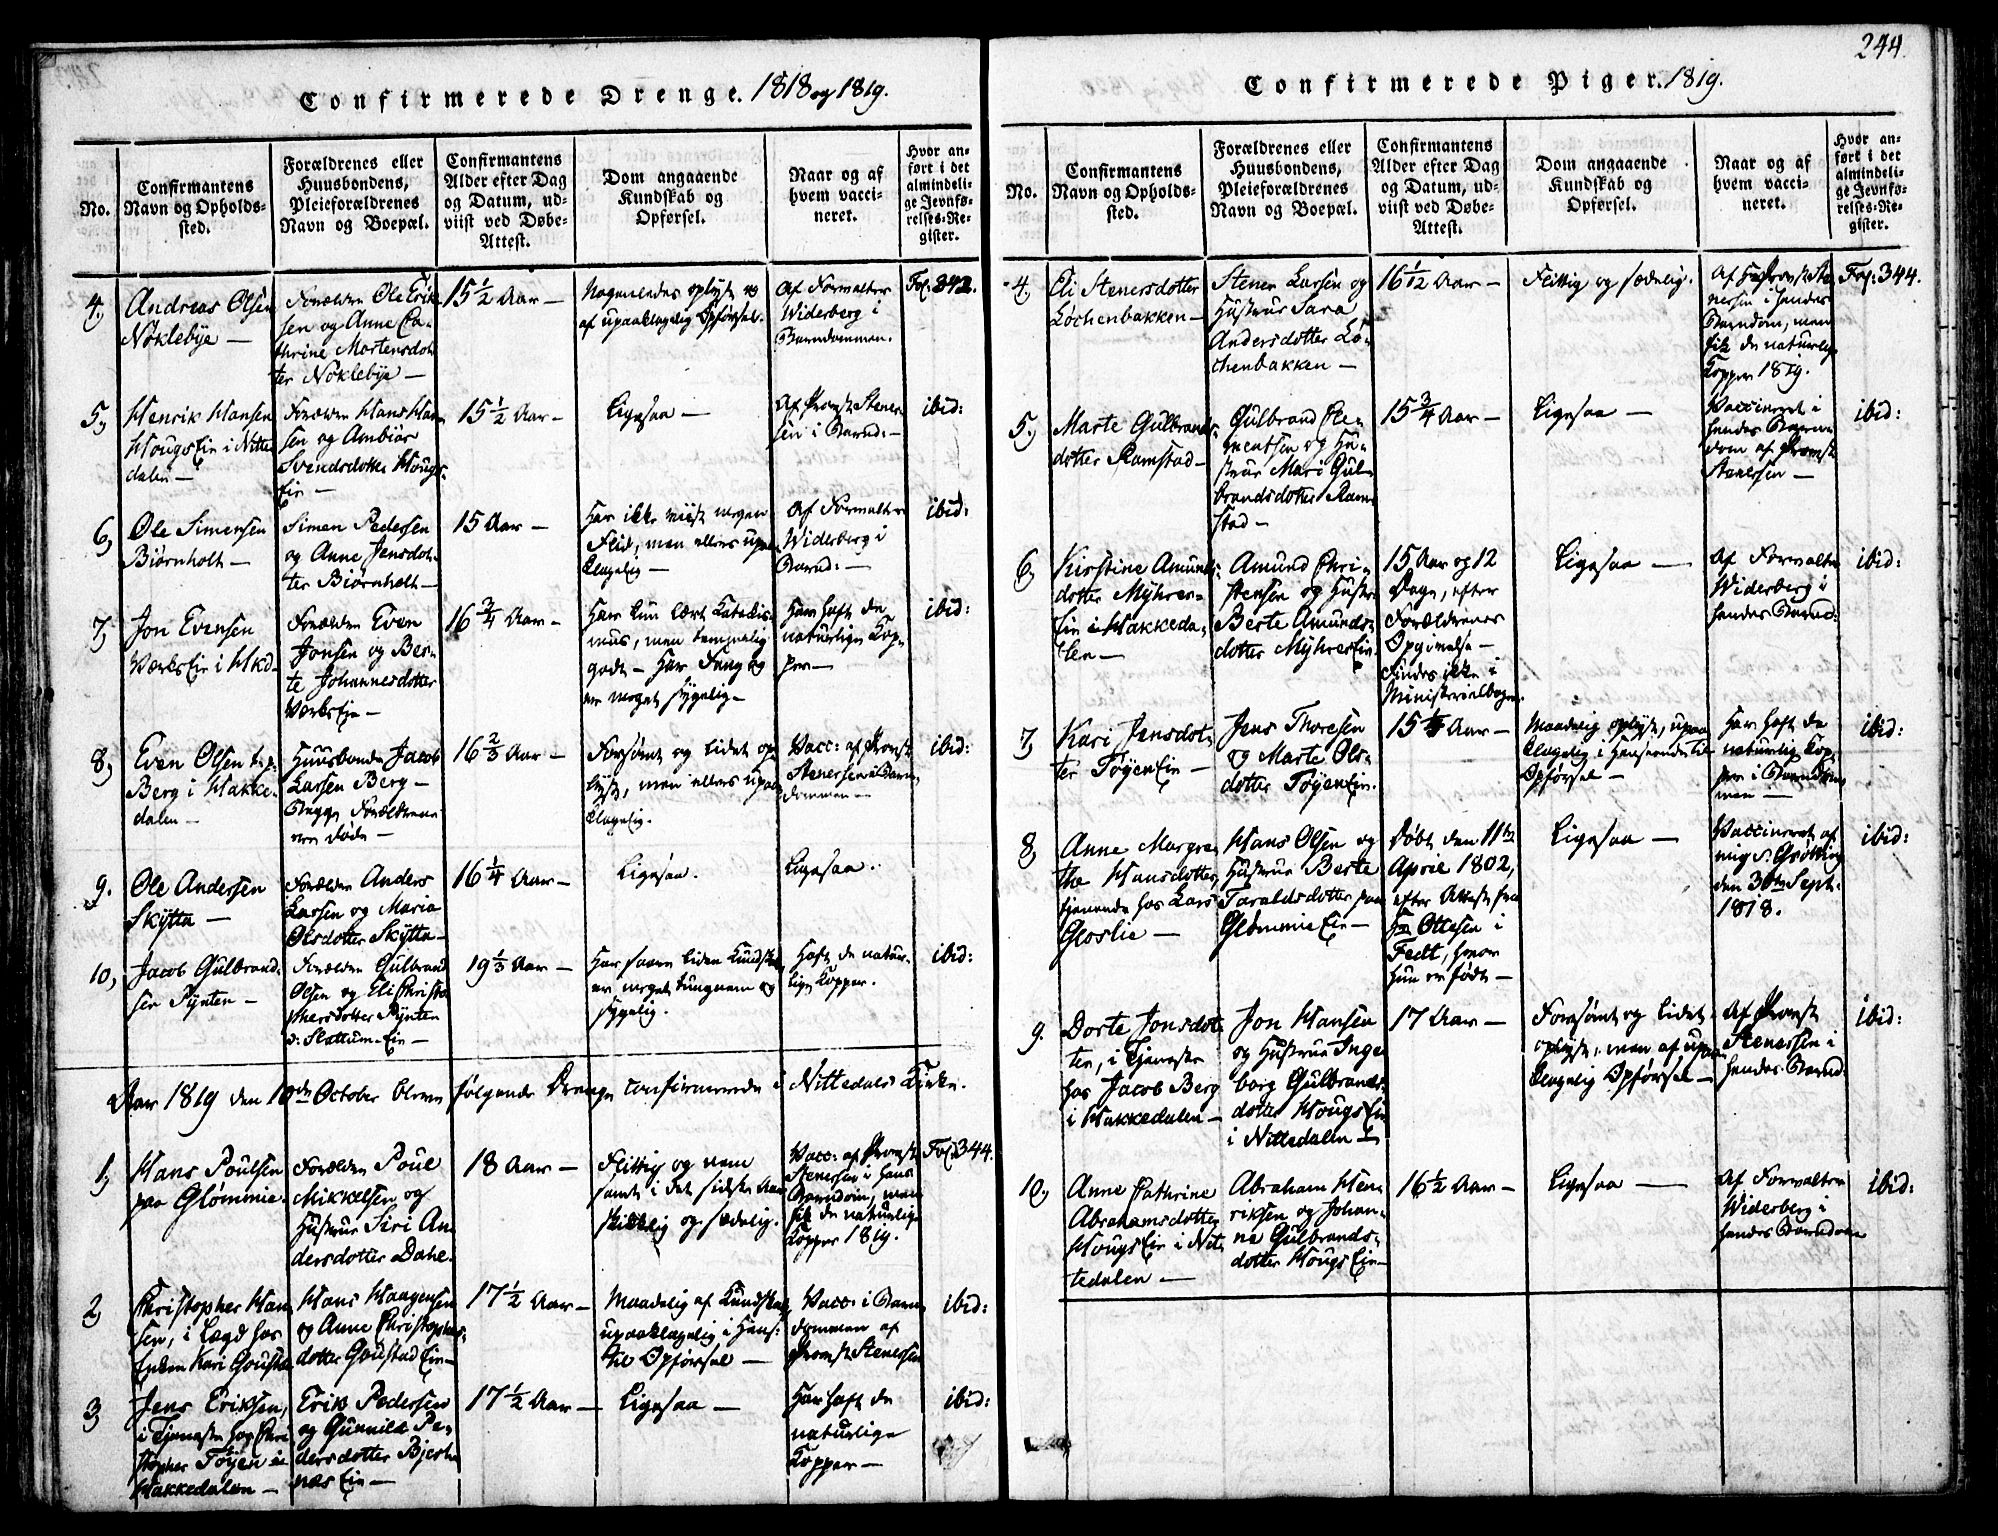 Confirmerede Drenge. 1818 og 1819.
No.
Confirmantens
Navn og Opholds-
sted.
Forældrenes eller
Huusbondens,
Pleieforældrenes
Navn og Boepæl.
Confirmantens
Alder efter Dag
og Datum, ud-
viist ved Døbe-
Attest.
Dom angaaende
Kundskab og
Opførsel.
Naar og af
hvem vacci-
neret.
Hvor an-
ført i det
almindeli-
ge Jevnfø-
relses-Re-
gister.
4,
Andreas Olsen
Nøklebye —
Forældre Ole Erik-
sen og Anne Ca-
thrine Mortensdot-
ter Nøklebye —
15 1/2 Aar —
Nogenledes oplyst og
af upaaklagelig Opførsel.
Af Forvalter
Widerberg i
Barndommen.
Fol. 342.
5,
Henrik Hansen
Hougs Eie i Nitte-
dalen —
Forældre Hans Han-
sen og Ambiør
Svendsdotter Hougs-
Eie —
15 1/2 Aar —
Ligesaa —
Af Provst Stener-
sen i Barnd: —
ibid:
6,
Ole Simensen
Biørnholt —
Simen Pedersen
og Anne Jensdot-
ter Biørnholt —
15 Aar —
Har ikke viist megen
Flid, men ellers upaa-
klagelig —
Af Forvalter
Widerberg i
Barnd: —
ibid:
7,
Jon Evensen
Værks Eie i Hkd-
Forældre Even
Jonsen og Ber-
te Johannesdotter
Værks Eie —
16 3/4 Aar —
Har kun lært Katekis-
mus, men temmelig
godt — Har Svag og
er meget sygelig —
Har haft de
naturlige Kop-
per —
ibid:
8,
Even Olsen
Berg i Hakke-
dalen —
Huusbonde Jacob
Larsen Berg —
Begge Forældrene
ere døde —
16 2/3 Aar —
Forsømt og lidet op-
lyst, men ellers upaa-
klagelig.
Vacc: af Provst
Stenersen i Barn-
dommen —
ibid:
9.
Ole Andersen
Skytta —
Forældre Anders
Larsen og Maria
Olsdotter Skytta —
16 1/4 Aar —
Ligesaa.
Ligesaa.
10,
Jacob Gulbrand-
sen Pynten —
Forældre Gulbrand
Olsen og Eli Christo-
phersdotter Pynten
o: Slattum-Eie —
19 1/3 Aar —
Har saare liden Kundskab
er meget tungnem og
sygelig.
Haft de natur-
lige Kopper.
ibid:
Aar 1819 den 10de October bleve følgende Drenge confirmerede i Nittedals Kirke.
1,
Hans Poulsen
paa Glømmie.
Forældre Poul
Mikkelsen og
Hustrue Siri An-
dersdotter Dahl.
18 Aar —
Flittig og nem
samt i det sidste Aar
skikkelig og sædelig.
Vacc: af Provst
Stenersen i hans
Barndom, men
fik de naturlige
Kopper 1819.
Fol. 344.
2,
Christopher Han-
sen, i Lægd hos
Enken Kari Goustad
Hans Haagensen
og Anne Christophers-
dotter Goustad Eie —
17 1/2 Aar —
Maadelig af Kundskab
upaaklagelig i Hens:
til Opførsel —
Vacc: i Barn-
dommen af
Provst Stenersen
ibid:
3,
Jens Eriksen,
i Tjeneste hos Chri-
stopher Tøyen i
Hakkedalen —
Erik Pedersen
og Gunnild Pe-
dersdotter Bjerke-
næs Eie —
17 1/2 Aar —
Ligesaa —
Har haft de
naturlige
Kopper —
ibid:
244.
Confirmerede Piger. 1819.
No.
Confirmantens
Navn og Opholds-
sted.
Forældrenes eller
Huusbondens,
Pleieforældrenes
Navn og Boepæl.
Confirmantens
Alder efter Dag
og Datum, ud-
viist ved Døbe-
Attest.
Dom angaaende
Kundskab og
Opførsel.
Naar og af
hvem vacci-
neret.
Hvor an-
ført i det
almindeli-
ge Jevnfø-
relses-Re-
gister.
4,
Eli Stenersdotter
Løchenbakken —
Stener Larsen og
Hustrue Sara
Andersdotter Lø-
chenbakken —
16 1/2 Aar —
Flittig og sædelig.
Af Hr Provst Ste-
nersen i hendes
Barndom, men
fik de naturlige
Kopper 1819.
Fol: 344.
5,
Marte Gulbrands-
dotter Ramstad —
Gulbrand Cle-
mentsen og Hu-
strue Mari Gul-
brandsdotter Ram-
stad —
15 3/4 Aar —
Ligesaa —
Vaccineret i
hendes Barn-
dom af Provst
Stenersen —
ibid:
6,
Kirstine Amunds-
dotter Myhrer-
Eie i Hakkeda-
len —
Amund Chri-
stensen og Hustr:
Berte Amunds-
dotter Myhrer Eie.
15 Aar og 12
Dage, efter
Forældrenes
Opgivelse —
Findes ikke i
Ministerialbogen.
Ligesaa —
Af Forvalter
Widerberg i
hendes Barnd:
ibid:
7,
Kari Jensdot-
ter Tøyen Eie —
Jens Thoresen
og Marte Ols-
dotter Tøyen Eie.
15 Aar —
Maadelig oplyst, upaa-
klagelig i Henseende til
Opførsel —
Har haft de
naturlig Kop-
per i Barndom-
men —
ibid:
8,
Anne Margre-
the Hansdotter,
tjenende hos Lars
Gloslie —
Hans Olsen og
Hustrue Berte
Taraldsdotter paa
Glømmie Eie —
Døbt den 11te
April 1802,
efter Attest fra
Hr Ottesen i
Fedt, hvor
hun er født —
Ligesaa —
Vaccineret af
mig S: Grøtting
den 30te Sept.
1818.
ibid:
9.
Dorte Jonsdot-
ter, i Tjeneste
hos Jacob Berg
i Hakkedalen —
Jon Hansen
og Hustrue Inge-
borg Gulbrands-
dotter Hougs Eie
i Nittedalen —
17 Aar —
Forsømt og lidet
oplyst, men af upaa-
klagelig Opførsel —
Af Provst
Stenersen i
hendes Barnd:
ibid:
10,
Anne Cathrine
Abrahamsdotter
Hougs Eie i Nit-
tedalen —
Abraham Hen-
riksen og Johan-
ne Gulbrands-
dotter Hougs Eie —
16 1/2 Aar —
Ligesaa —
Af Forvalter
Widerberg i
hendes Barndom
ibid: